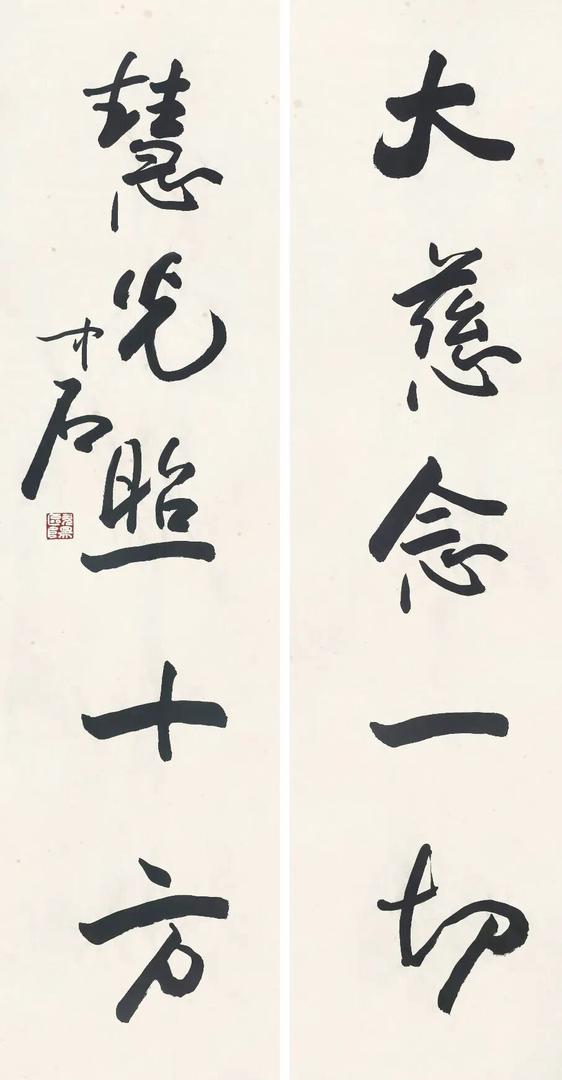 大慈念一切
慧光照十方
中石